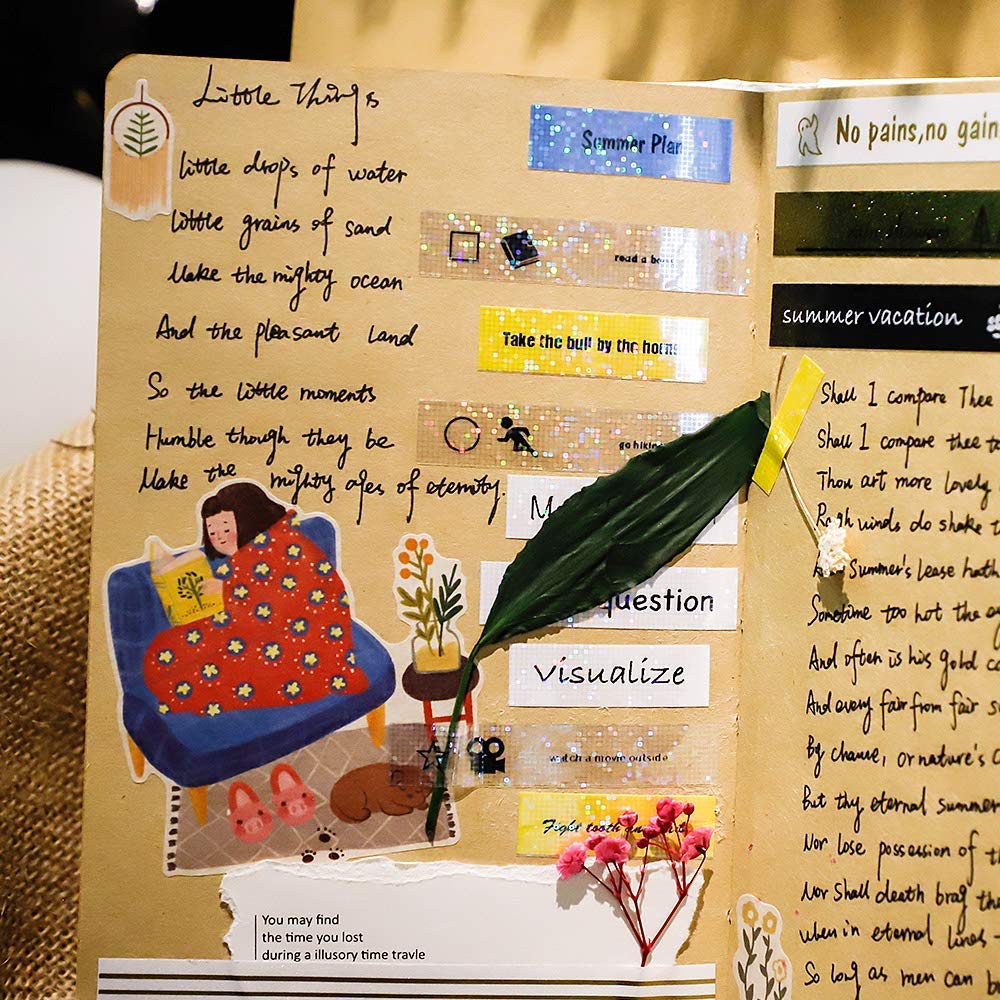 Little Things
little drops of water
little grains of sand
Make the mighty ocean
And the pleasant Land
So the little moments
Humble though they be
Make the mighty ages of eternity.
Summer Plan
read a
Take the bull by the horns
go hiking
question
Visualize
watch a movie outside
Fight tooth
You may find
the time you lost
during a illusory time travle
No pains,no gain
summer vacation
Shall I compare Thee
Shall I compare thee to
Thou art more lovely
Rough winds do shake
Summer's lease hath
Sometime too hot the
And often is his gold
And every fair from fair
By chance, or nature's
But thy eternal summer
Nor lose possession of
Nor Shall death brag
when in eternal lines
So long as men can